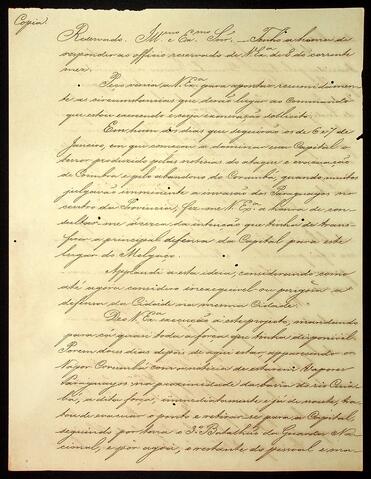 Copia
Reservado. Ill.mo e Ex.mo Snr. — Tenho a honra de
responder ao officio reservado de V. Ex.a de 8 do corrente
mez.
Peço venia a V. Ex.a para apontar resumidamen-
te as circumstancias que derão lugar ao Commando
que estou exercendo e cuja exoneração solicito.
Em hum dos dias que seguirão os de 6 e 7 de
Janeiro, em que começou a dominar essa Capital o
terror produzido pelas noticias do ataque e evacuação
de Coimbra e pelo abandono de Corumbá, quando muitos
julgavão imminente a invasão dos Paraguayos no
centro da Provincia, fez-me V. Ex.a a honra de con-
sultar-me ácerca da intenção que tinha de trans-
ferir a principal defensa da Capital para este
lugar do Melgaço.
Applaudi a esta ideia, considerando como
até agora considero inexequivel ou perigosa a
defensa da Cidade na mesma Cidade.
Deu V. Ex.a execução a este proposto, mandando
para cá quasi toda a força que tinha disponivel.
Porem dous dias depois de aqui estar, apparecendo o
Vapor Corumbá com a noticia de estarem Vapores
Paraguayos na proximidade da barra do rio Cuia-
bá, a dita força, immediatamente e já de noute, tra-
tou de evacuar o ponto e retirar-se para a Capital,
seguindo por terra o 3.o Batalhão da Guarda Na-
cional, e por agoa, o restante do pessoal e ma-